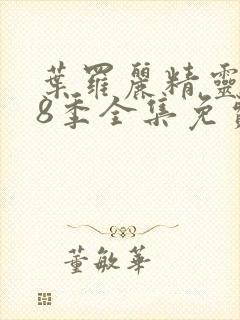 葉羅麗精靈
8季全集免費
董敏華